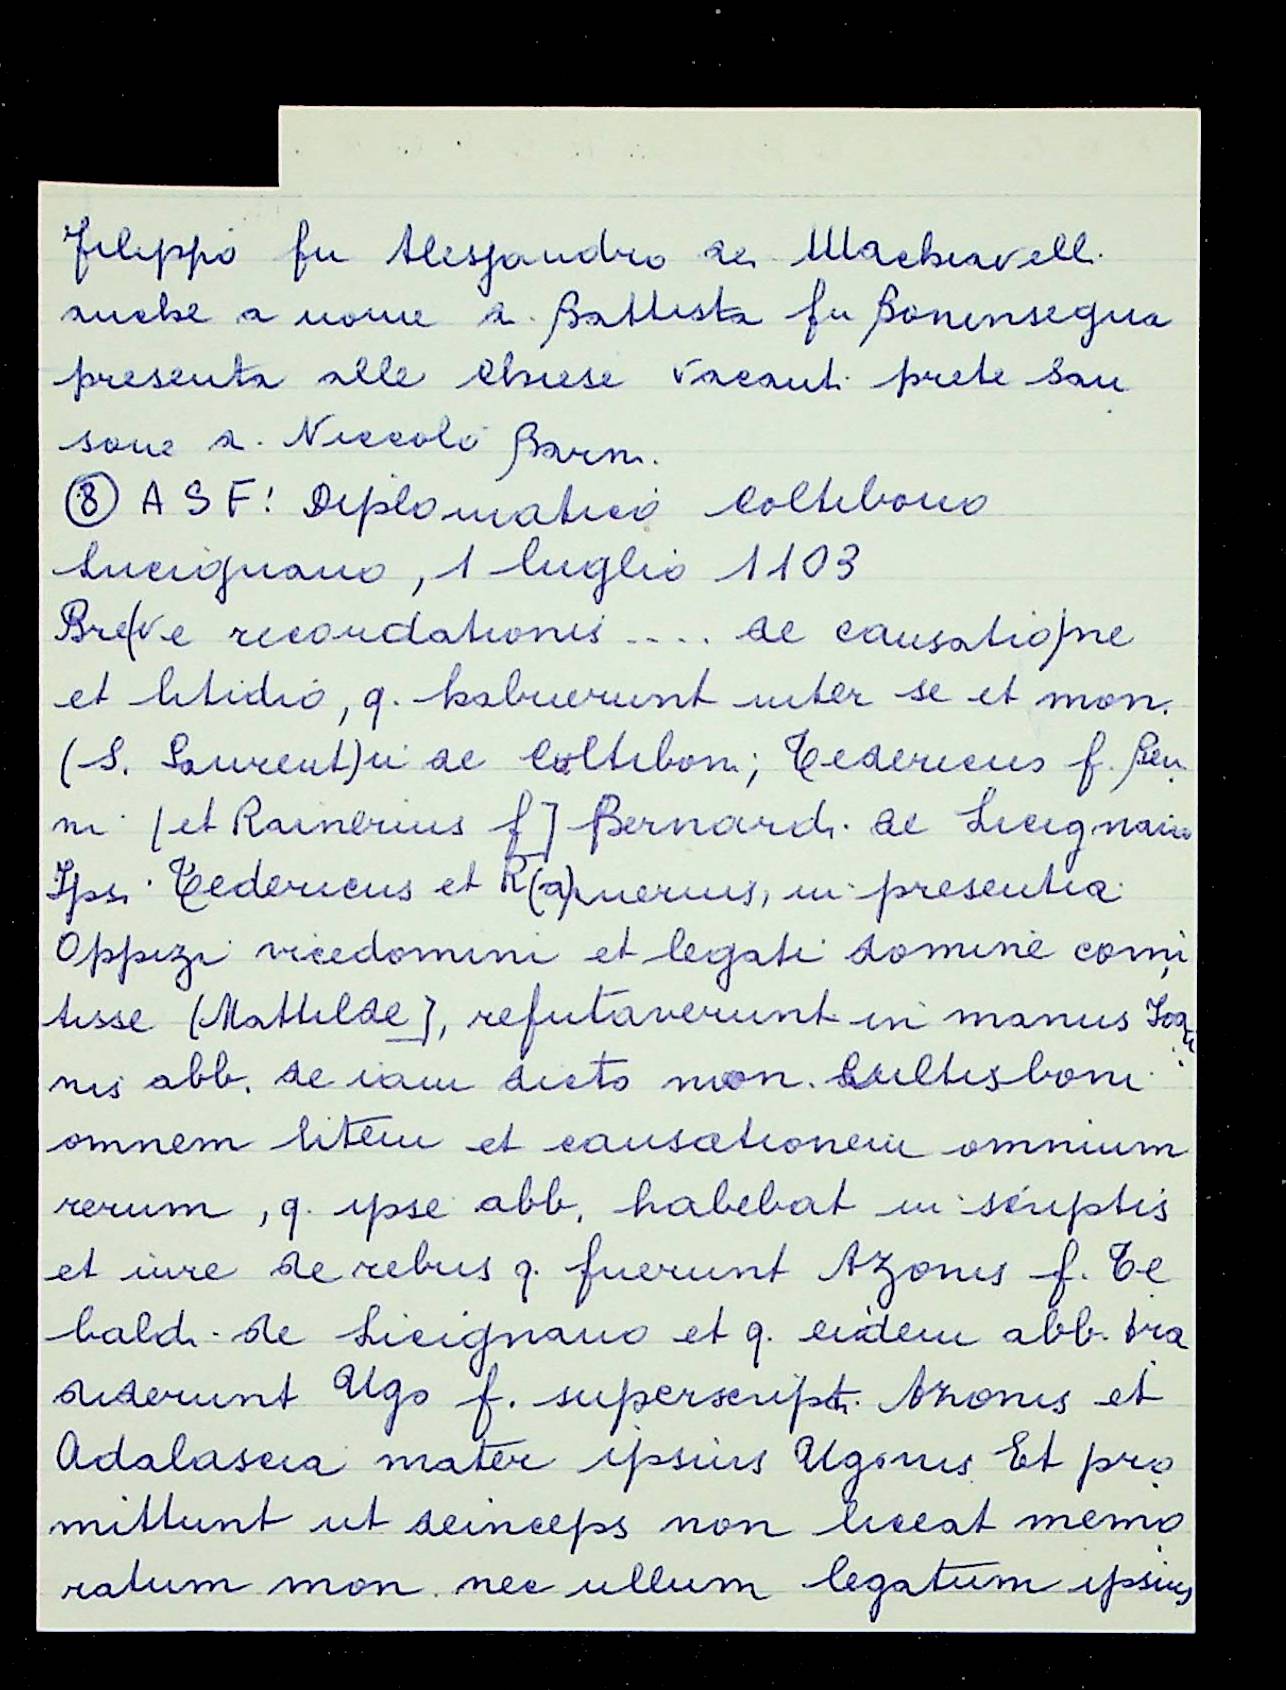 Filippo fu Alessandro dei Machiavelli
anche a nome di Battista fu Boninsegna
presenta alle chiese vacanti prete San
sone di Niccolò Barni.
⑧ ASF: Diplomatico Coltibono
Lucignano, 1 luglio 1103
Bre(ve recordationis .... de causatio)ne
et litidio, q. habuerunt inter se et mon.
(S. Laurent)ii de Coltiboni; Tedericus f. Ben
ni [et Rainerius f] Bernardi de Licignano
Ipsi Tedericus et R(a)inerius, in presentia
Oppizi vicedomini et legati domine comi
tisse [Mattilde], refutaverunt in manus Joan
nis abb. de iam dicto mon. Cultisboni
omnem litem et causationem omnium
rerum, q. ipse abb. habebat in scriptis
et iure de rebus q. fuerunt Azonis f. Te
baldi de Licignano et q. eidem abb. tra
diderunt Ugo f. superscripti Azonis et
Adalascia mater ipsius Ugonis Et pro
mittunt ut deinceps non liceat memo
ratum mon. nec ullum legatum ipsius